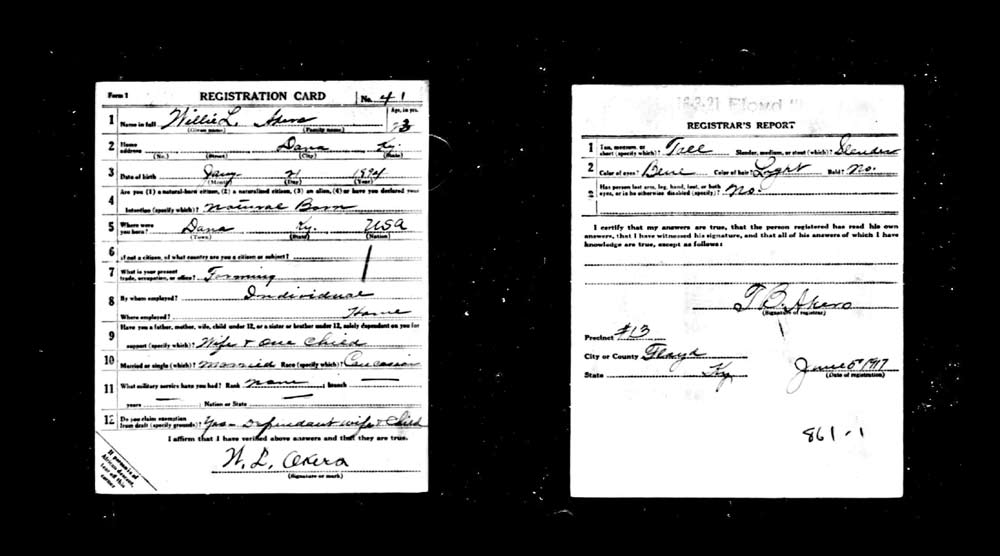 Form 1 REGISTRATION CARD No. 41
1 Name in full Willie L. Akers Age, in yrs. 23
(Given name) (Family name)
2 Home address Dana Ky.
(No.) (Street) (City) (State)
3 Date of birth Jany 21 1894
(Month) (Day) (Year)
4 Are you (1) a natural-born citizen, (2) a naturalized citizen, (3) an alien, (4) or have you declared your
intention (specify which)? Natural Born
5 Where were you born? Dana Ky. USA
(Town) (State) (Nation)
6 If not a citizen, of what country are you a citizen or subject?
7 What is your present trade, occupation, or office? Farming
8 By whom employed? Individual
Where employed? Home
9 Have you a father, mother, wife, child under 12, or a sister or brother under 12, solely dependent on you for
support (specify which)? Wife & One Child
10 Married or single (which)? Married Race (specify which)? Caucasian
11 What military service have you had? Rank None ; branch —
years — ; Nation or State —
12 Do you claim exemption from draft (specify grounds)? Yes - Dependant wife & Child
I affirm that I have verified above answers and that they are true.
W. L. Akers
(Signature or mark)
If person is of
African descent,
tear off this
corner
16-3-21 Floyd
REGISTRAR'S REPORT
1 Tall, medium, or short (specify which)? Tall Slender, medium, or stout (which)? Slender
2 Color of eyes? Blue Color of hair? Light Bald? No.
3 Has person lost arm, leg, hand, foot, or both
eyes, or is he otherwise disabled (specify)? No.
I certify that my answers are true, that the person registered has read his own
answers, that I have witnessed his signature, and that all of his answers of which I have
knowledge are true, except as follows:
T. B. Akers
(Signature of registrar)
Precinct #13
City or County Floyd
State Ky June 5 1917
(Date of registration)
861-1